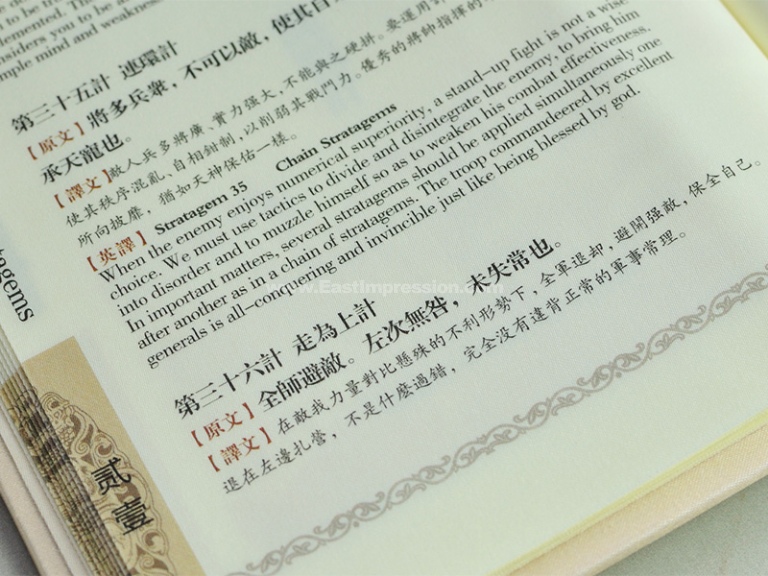 to be tru
emented. The
nsiders you to be a
mple mind and weakness
第三十五計 連環計
【原文】將多兵衆，不可以敵，使其自
承天寵也。
【譯文】敵人兵多將廣、實力强大，不能與之硬拼。要運用
使其秩序混亂、自相鉗制，以削弱其戰鬥力。優秀的將帥指揮的
所向披靡，猶如天神保佑一樣。
【英譯】Stratagem 35 Chain Stratagerns
When the enemy enjoys numerical superiority, a stand-up fight is not a wise
choice. We must use tactics to divide and disintegrate the enemy, to bring him
into disorder and to muzzle himself so as to weaken his combat effectiveness.
In important matters, several stratagems should be applied simultaneously one
after another as in a chain of stratagems. The troop commandeered by excellent
generals is all-conquering and invincible just like being blessed by god.
第三十六計 走為上計
【原文】全師避敵。左次無咎，未失常也。
【譯文】在敵我力量對比懸殊的不利形勢下，全軍退却，避開强敵，保全自己。
退在左邊扎營，不是什麽過錯，完全没有違背正常的軍事常理。
tagems
贰壹
www.EastImpression.com